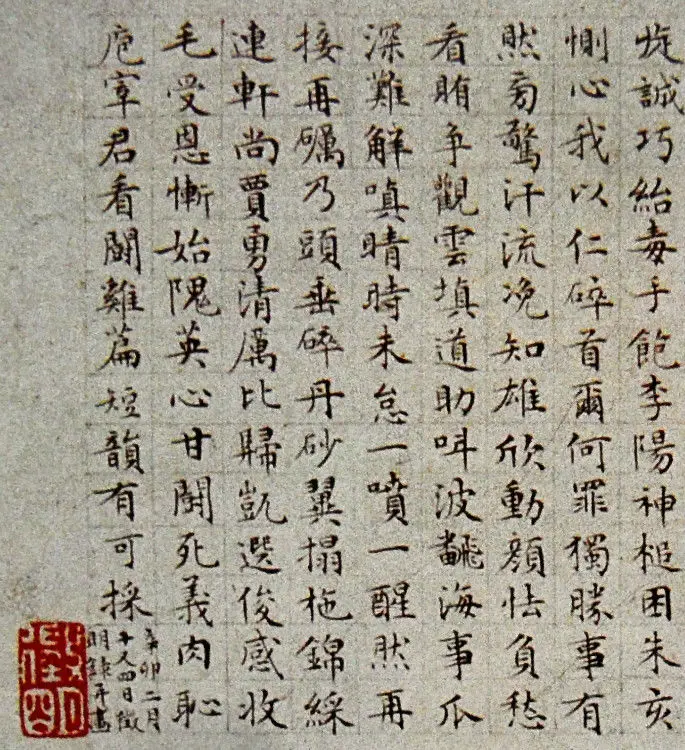 旋誠巧紿毒手飽李陽神槌困朱亥
惻心我以仁碎首爾何罪獨勝事有
然旁驚汗流浼知雄欣動顏怯負愁
看賄爭觀雲填道助叫波飜海事爪
深難解嗔睛時未怠一噴一醒然再
接再礪乃頭垂碎丹砂翼搨拖錦綵
連軒尚賈勇清厲比歸凱選俊感收
毛受恩慚始隗英心甘鬪死義肉恥
庖宰君看鬪雞篇短韻有可採
辛卯二月
十又四日徵
明錄并畫